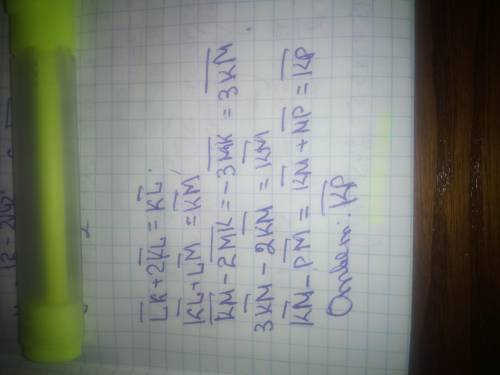 L͞K + 2K͞L = K͞L
K͞L + L͞M = K͞M
K͞M - 2M͞K = -3M͞K = 3K͞M
3K͞M - 2K͞M = K͞M
K͞M - P͞M = K͞M + M͞P = K͞P
Ответ: K͞P